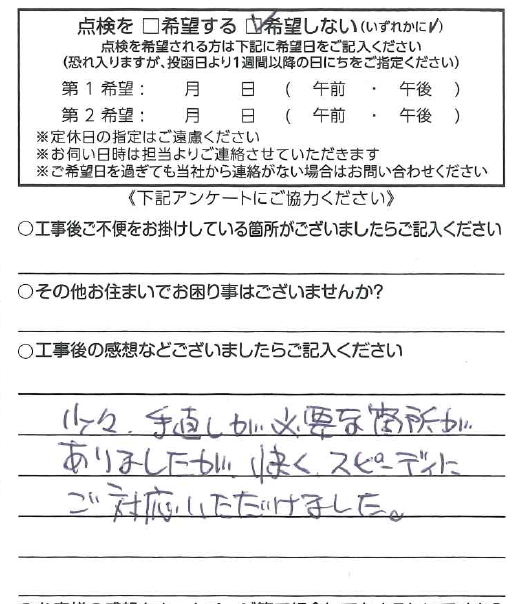 点検を □希望する ☑希望しない(いずれかに✓)
点検を希望される方は下記に希望日をご記入ください
(恐れ入りますが、投函日より1週間以降の日にちをご指定ください)
第1希望: 月 日 ( 午前 ・ 午後 )
第2希望: 月 日 ( 午前 ・ 午後 )
※定休日の指定はご遠慮ください
※お伺い日時は担当よりご連絡させていただきます
※ご希望日を過ぎても当社から連絡がない場合はお問い合わせください
《下記アンケートにご協力ください》
○工事後ご不便をお掛けしている箇所がございましたらご記入ください
○その他お住まいでお困り事はございませんか?
○工事後の感想などございましたらご記入ください
少々、手直しが必要な箇所が
ありましたが、快く、スピーディに
ご対応いただけました。